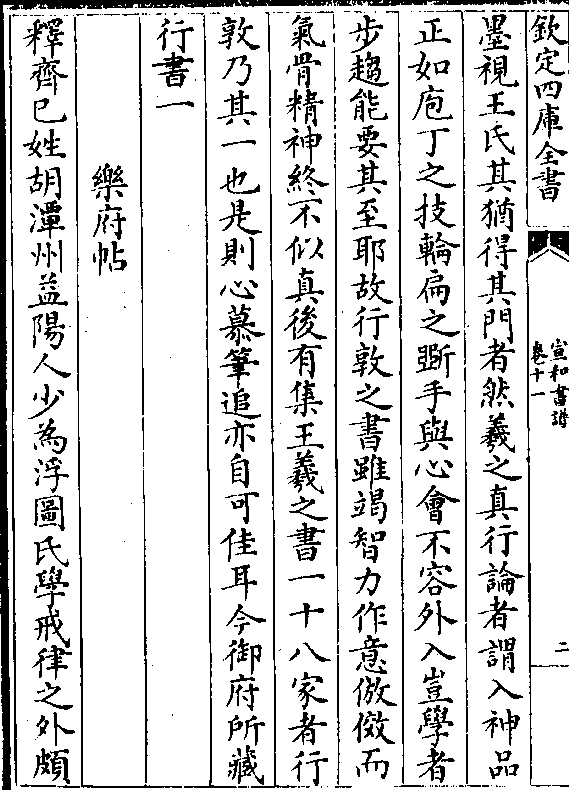 欽定四庫全書
宣和書譜
卷十一
二
墨視王氏其猶得其門者然羲之真行論者謂入神品
正如庖丁之技輪扁之斵手與心會不容外入豈學者
步趨能要其至耶故行敦之書雖竭智力作意倣傚而
氣骨精神終不似真後有集王羲之書一十八家者行
敦乃其一也是則心慕筆追亦自可佳耳今御府所藏
行書一
樂府帖
釋齊巳姓胡潭州益陽人少為浮圖氏學戒律之外頗